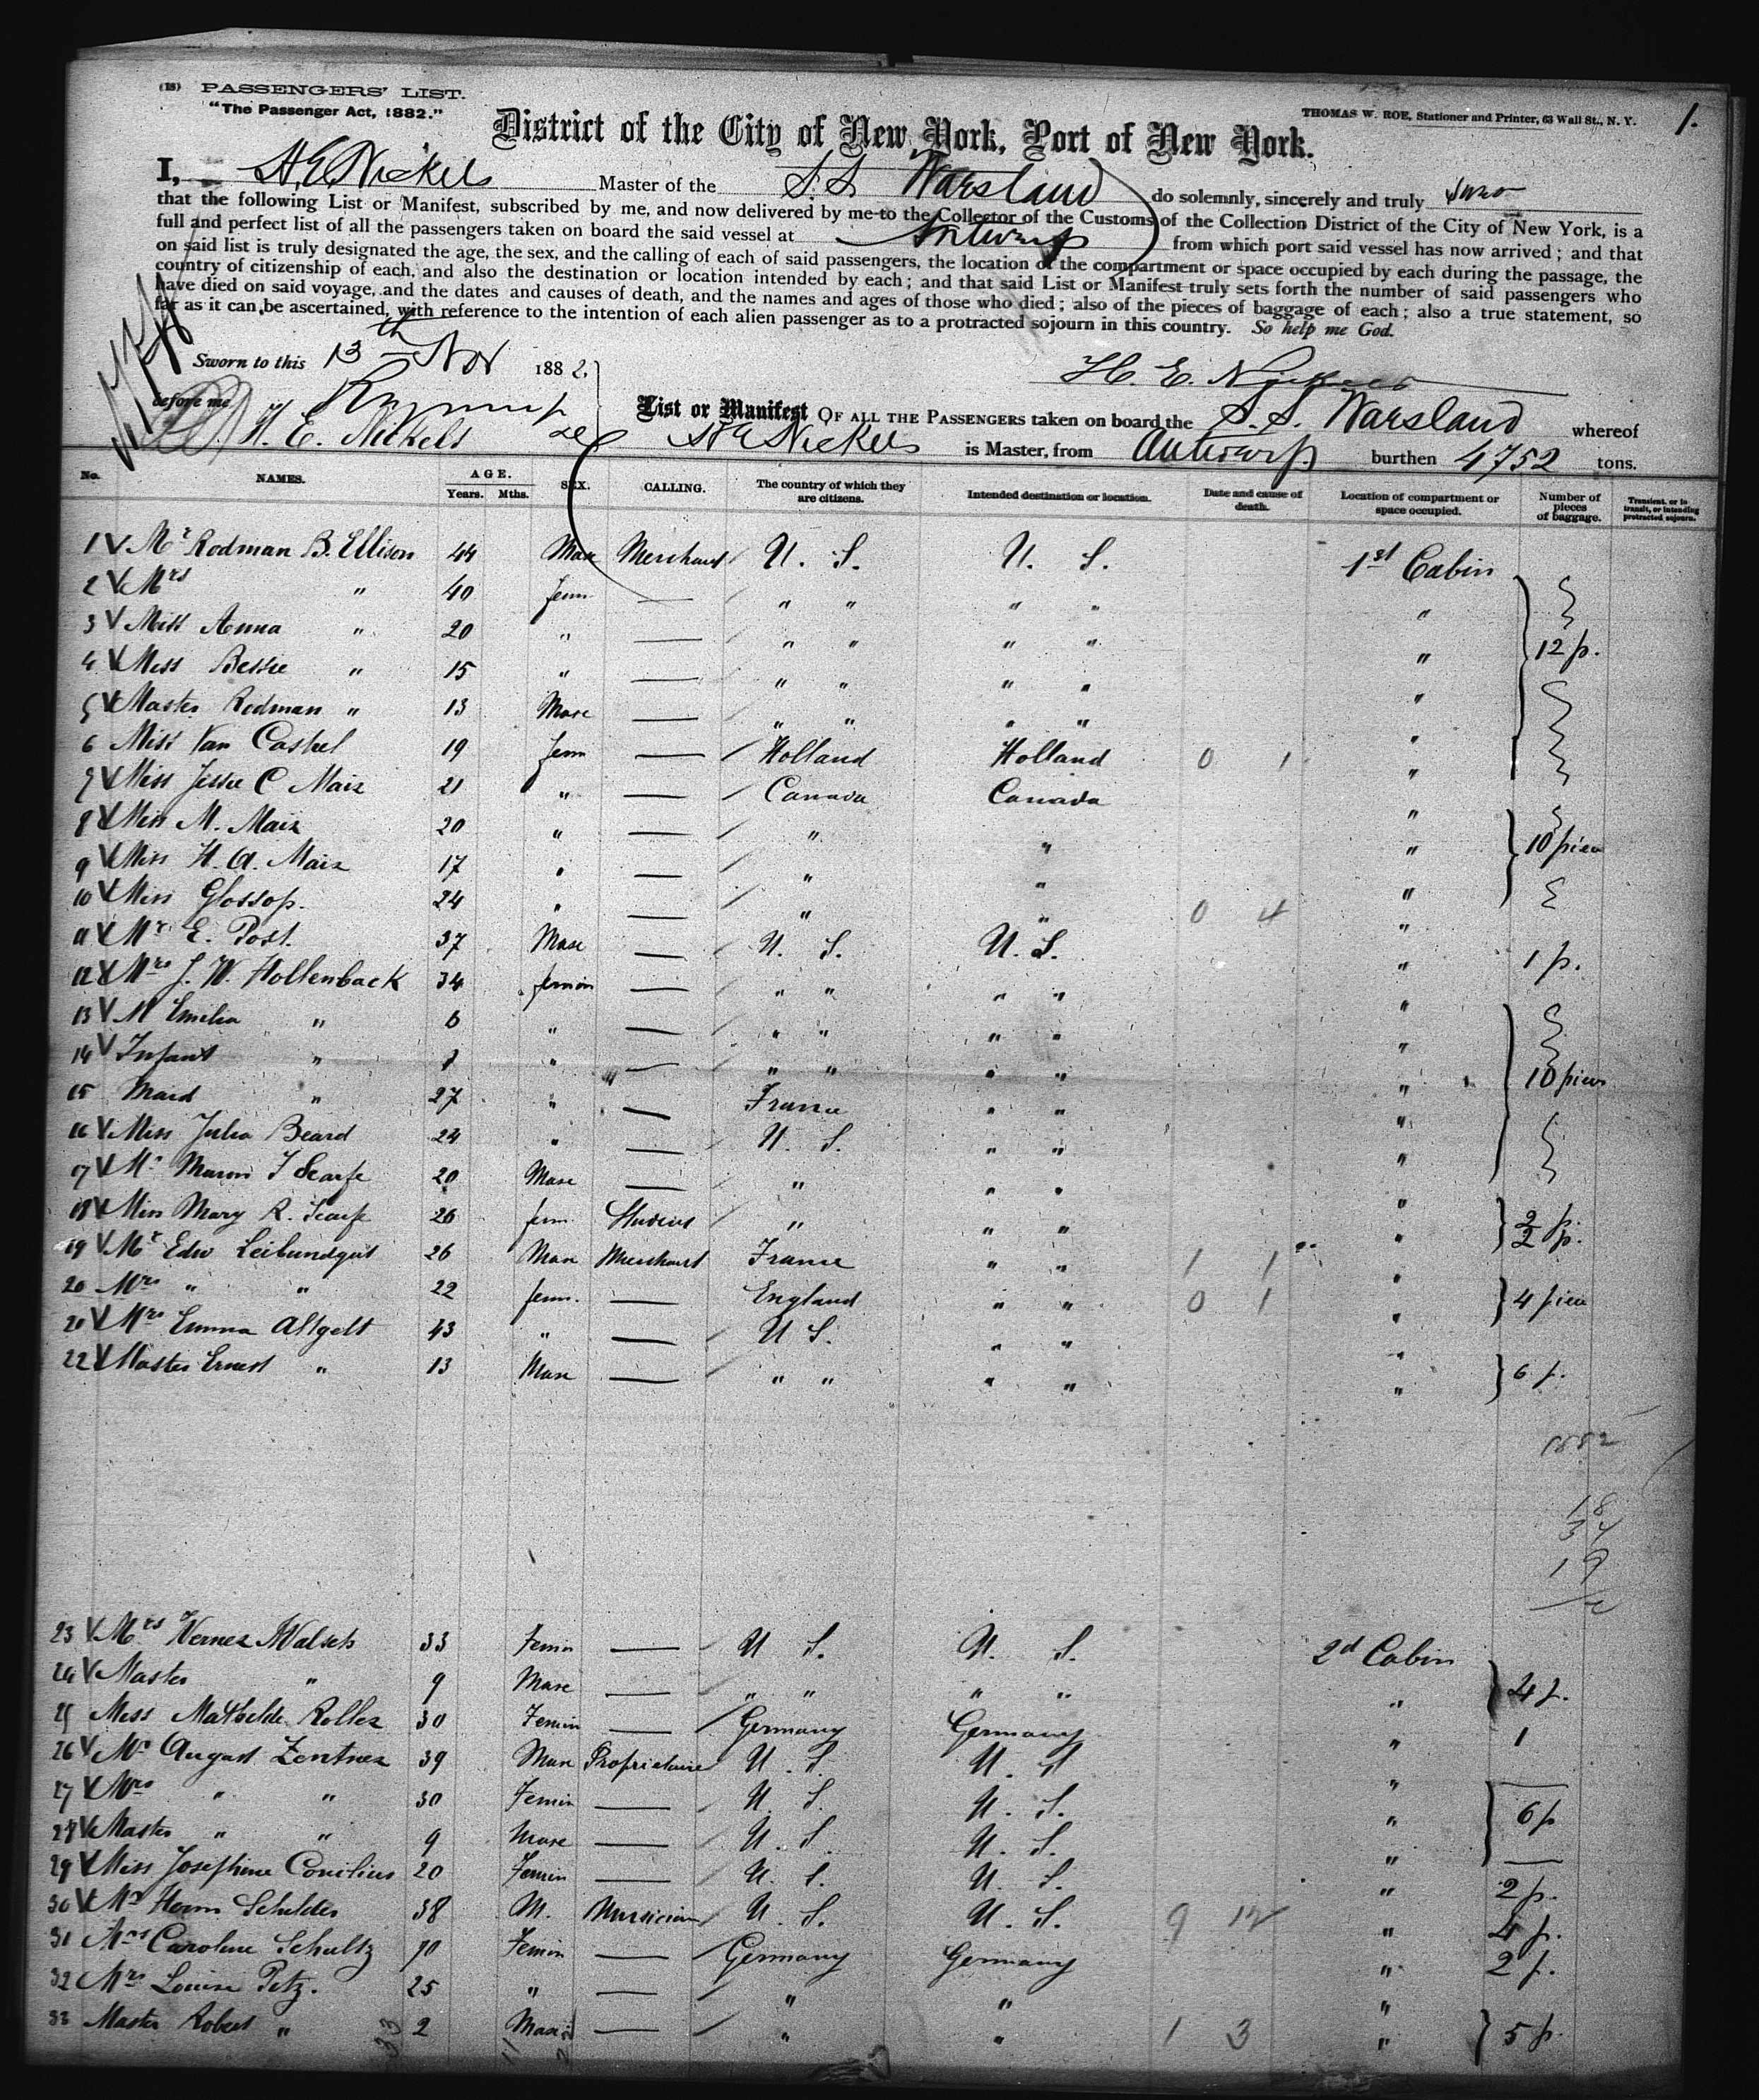 (18) PASSENGERS' LIST.
"The Passenger Act, 1882."
THOMAS W. ROE, Stationer and Printer, 63 Wall St., N. Y.
1.
District of the City of New York, Port of New York.
I, H.E. Nickels Master of the S.S. Waesland do solemnly, sincerely and truly swear
that the following List or Manifest, subscribed by me, and now delivered by me to the Collector of the Customs of the Collection District of the City of New York, is a
full and perfect list of all the passengers taken on board the said vessel at Antwerp from which port said vessel has now arrived; and that
on said list is truly designated the age, the sex, and the calling of each of said passengers, the location of the compartment or space occupied by each during the passage, the
country of citizenship of each, and also the destination or location intended by each; and that said List or Manifest truly sets forth the number of said passengers who
have died on said voyage, and the dates and causes of death, and the names and ages of those who died; also of the pieces of baggage of each; also a true statement, so
far as it can be ascertained, with reference to the intention of each alien passenger as to a protracted sojourn in this country. So help me God.
Sworn to this 13th Nov 1882.
H. E. Nickels
before me
H. E. Nickels
List or Manifest OF ALL THE PASSENGERS taken on board the S.S. Waesland whereof
HE Nickels is Master, from Antwerp burthen 4752 tons.
No. NAMES. AGE. Years. Mths. SEX. CALLING. The country of which they are citizens. Intended destination or location. Date and cause of death. Location of compartment or space occupied. Number of pieces of baggage. Transient, or in transit, or intending protracted sojourn.
1 V Mr Rodman B. Ellison 44 Masc Merchant U. S. U. S. 1st Cabin
2 V Mrs " 40 fem — " " " " "
3 V Miss Anna " 20 " — " " " " " 12 p.
4 V Miss Bessie " 15 " — " " " " "
5 V Master Rodman " 13 Masc — " " " " "
6 Miss Van Cashel 19 fem — Holland Holland 0 1 "
7 V Miss Jessie C Mair 21 " — Canada Canada "
8 V Miss M. Mair 20 " — " " " 10 pieces
9 V Miss H. A. Mair 17 " — " " "
10 V Miss Glossop. 24 " — " " 0 4 "
11 V Mr E. Post. 37 Masc — U. S. U. S. " 1 p.
12 V Mrs J. W. Hollenback 34 femin — " " " " "
13 V M Emilia " 6 " — " " " " "
14 V Infant " " — " " " " " 10 pieces
15 Maid " 27 " — France " " "
16 V Miss Julia Beard 24 " — U. S. " " "
17 V Mr T Scarfe 20 Masc — " " " "
18 V Miss Mary R. Scarfe 26 fem " " " " 2 p. 2 p.
19 V Mr Edw Leibundgut 26 Masc Merchant France " " 1 1 "
20 Mrs " " 22 fem. — England " " 0 1 " 4 pieces
21 V Mrs Emma Altgelt 43 " — U S. " " "
22 V Master Ernest " 13 Masc — " " " " " 6 p.
1882
18
34
19
23 V Mrs Werner 33 Femin — U S. U. S. 2d Cabin
24 V Master " 9 Masc — " " " " " 4 p.
25 Miss Mathelde Roller 30 Femin — Germany Germany " 1
26 V Mr August Zentner 39 Masc Proprietaire U. S. U. S. "
27 V Mrs " " 30 Femin — U. S. U. S. " 6 p
28 V Master " " 9 Masc — U. S. U. S. "
29 V Miss Josephine 20 Femin — U. S. U. S. " 2 p.
30 V Mr Herm Schilder 38 M. Musician U. S. U. S. 9 12 " 4 p.
31 Mrs Caroline Schultz 70 Femin — Germany Germany " 2 p.
32 Mrs Louise Petz. 25 " — " " "
33 Master Robert " 2 Masc — " " 1 3 " 5 p.
33 11